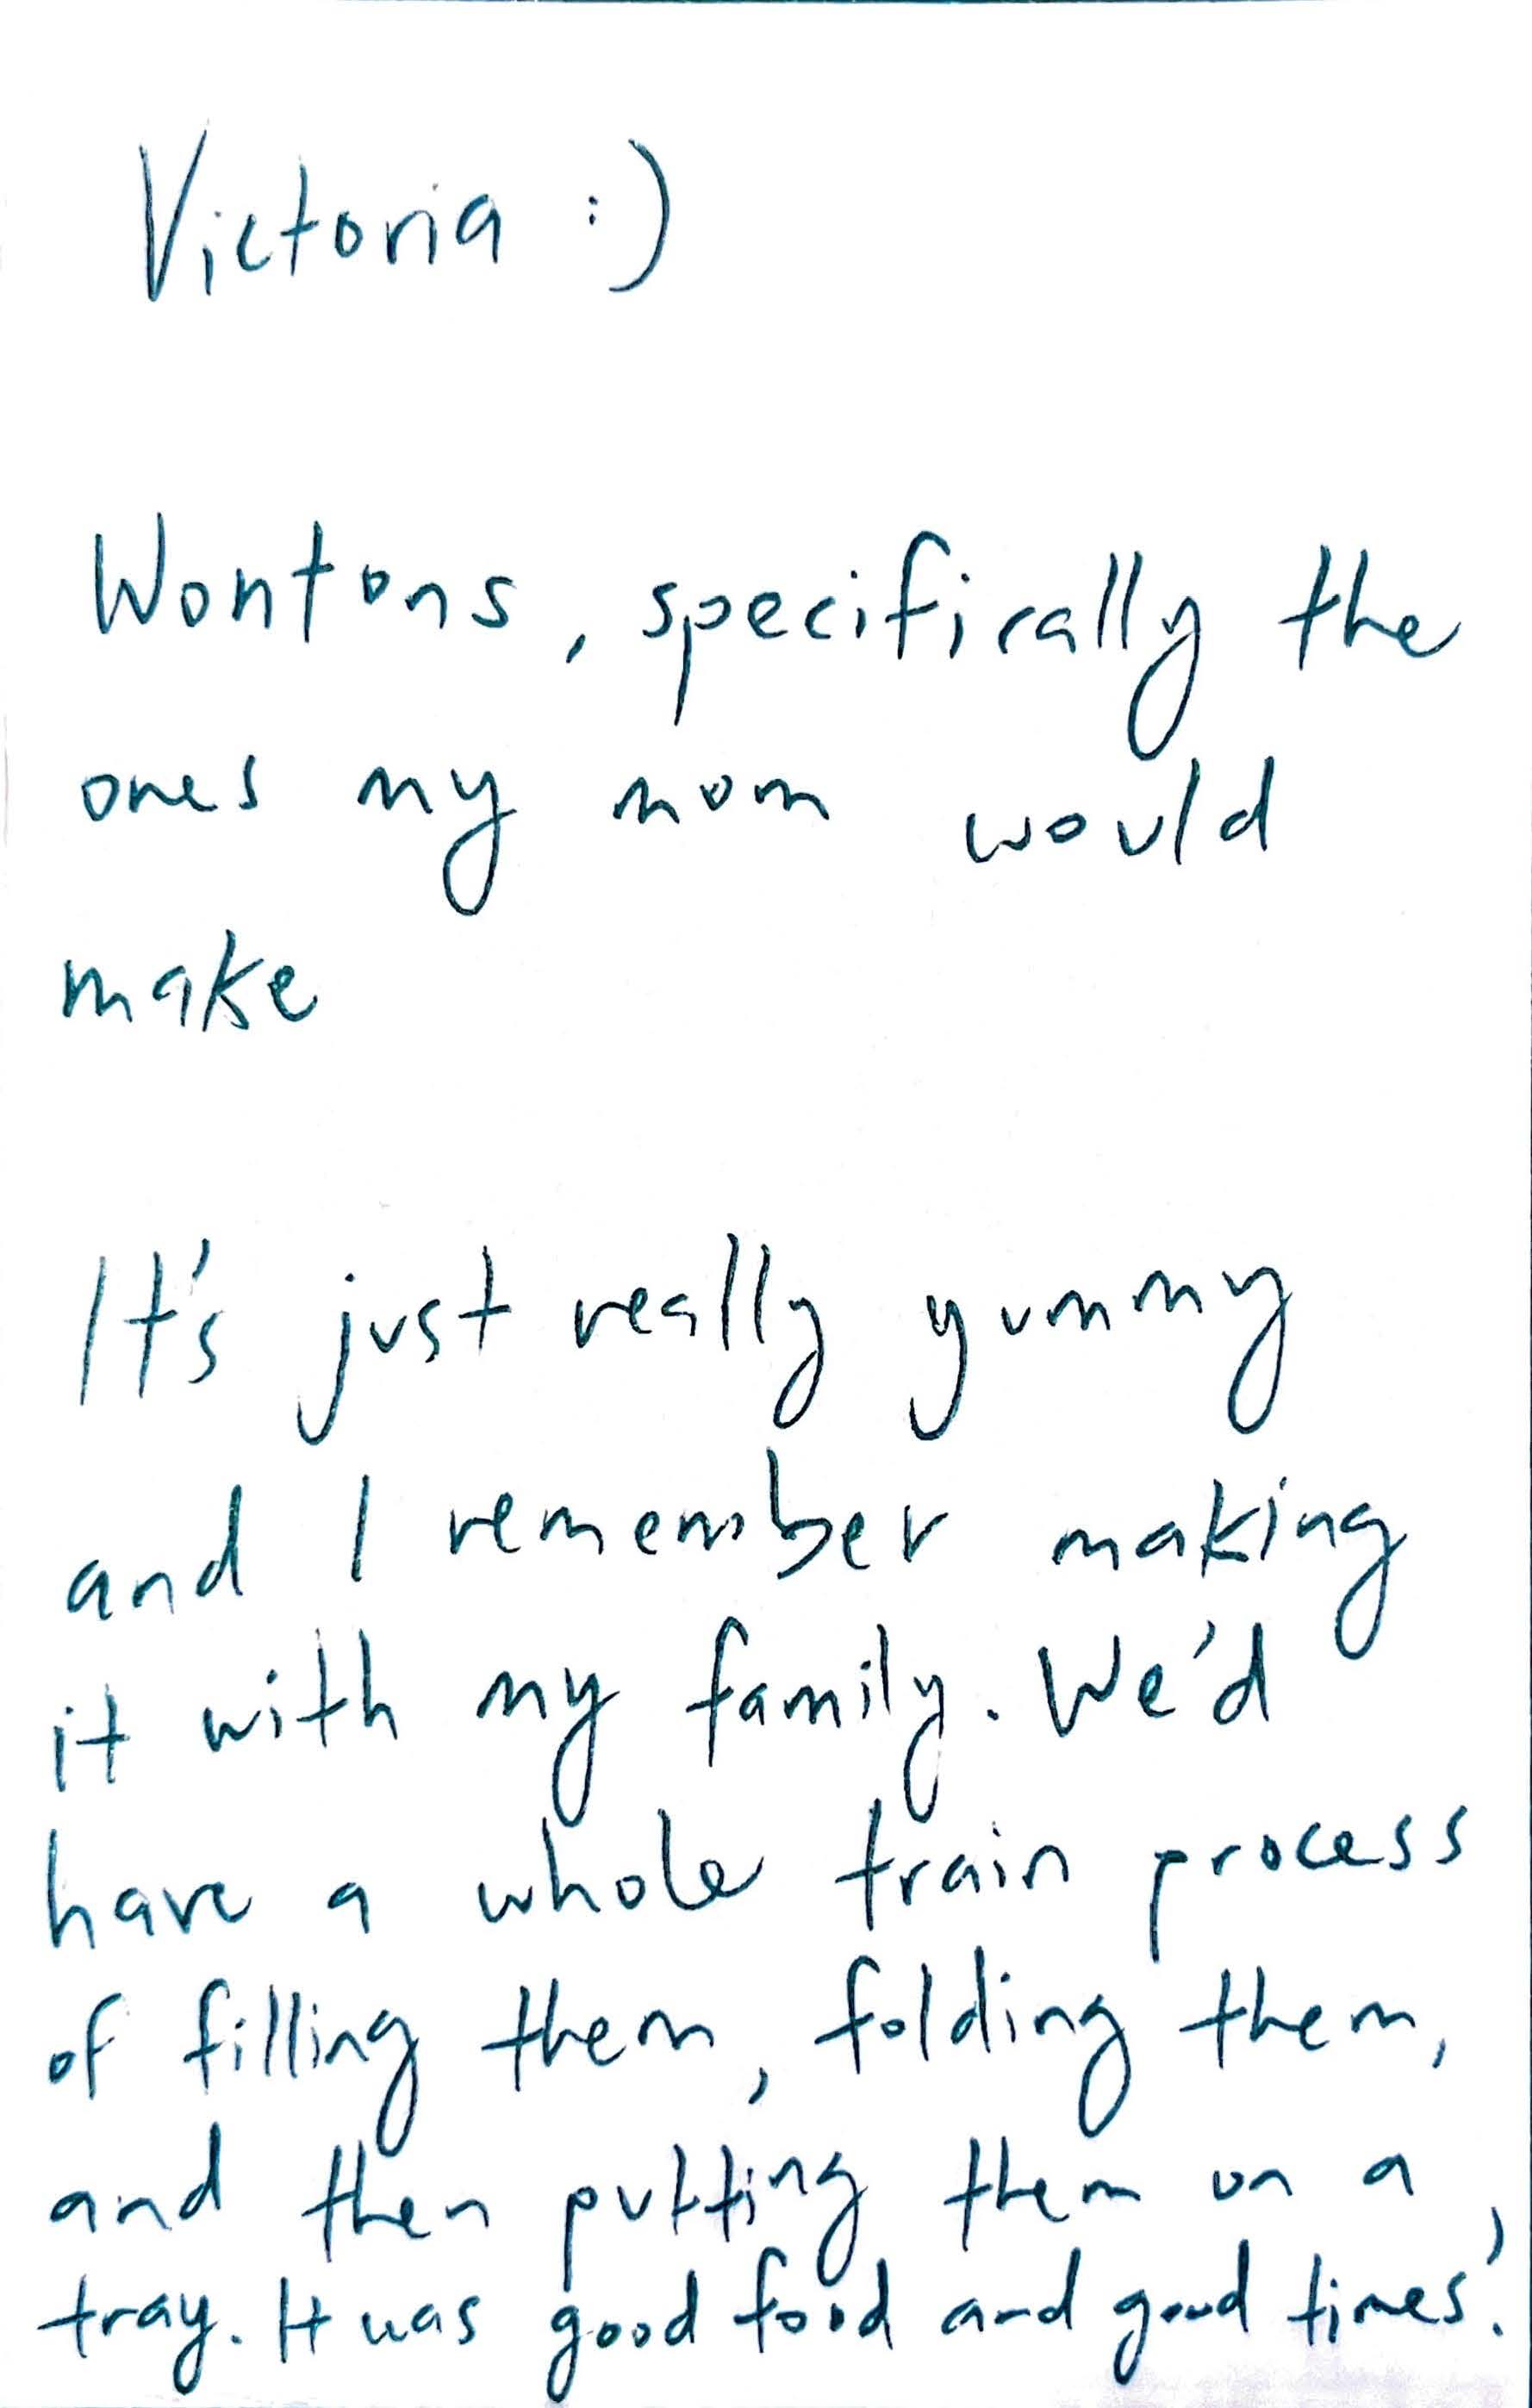 Victoria :)
Wontons, specifically the
ones my mom would
make
It's just really yummy
and I remember making
it with my family. We'd
have a whole train process
of filling them, folding them,
and then putting them on a
tray. It was good food and good times!